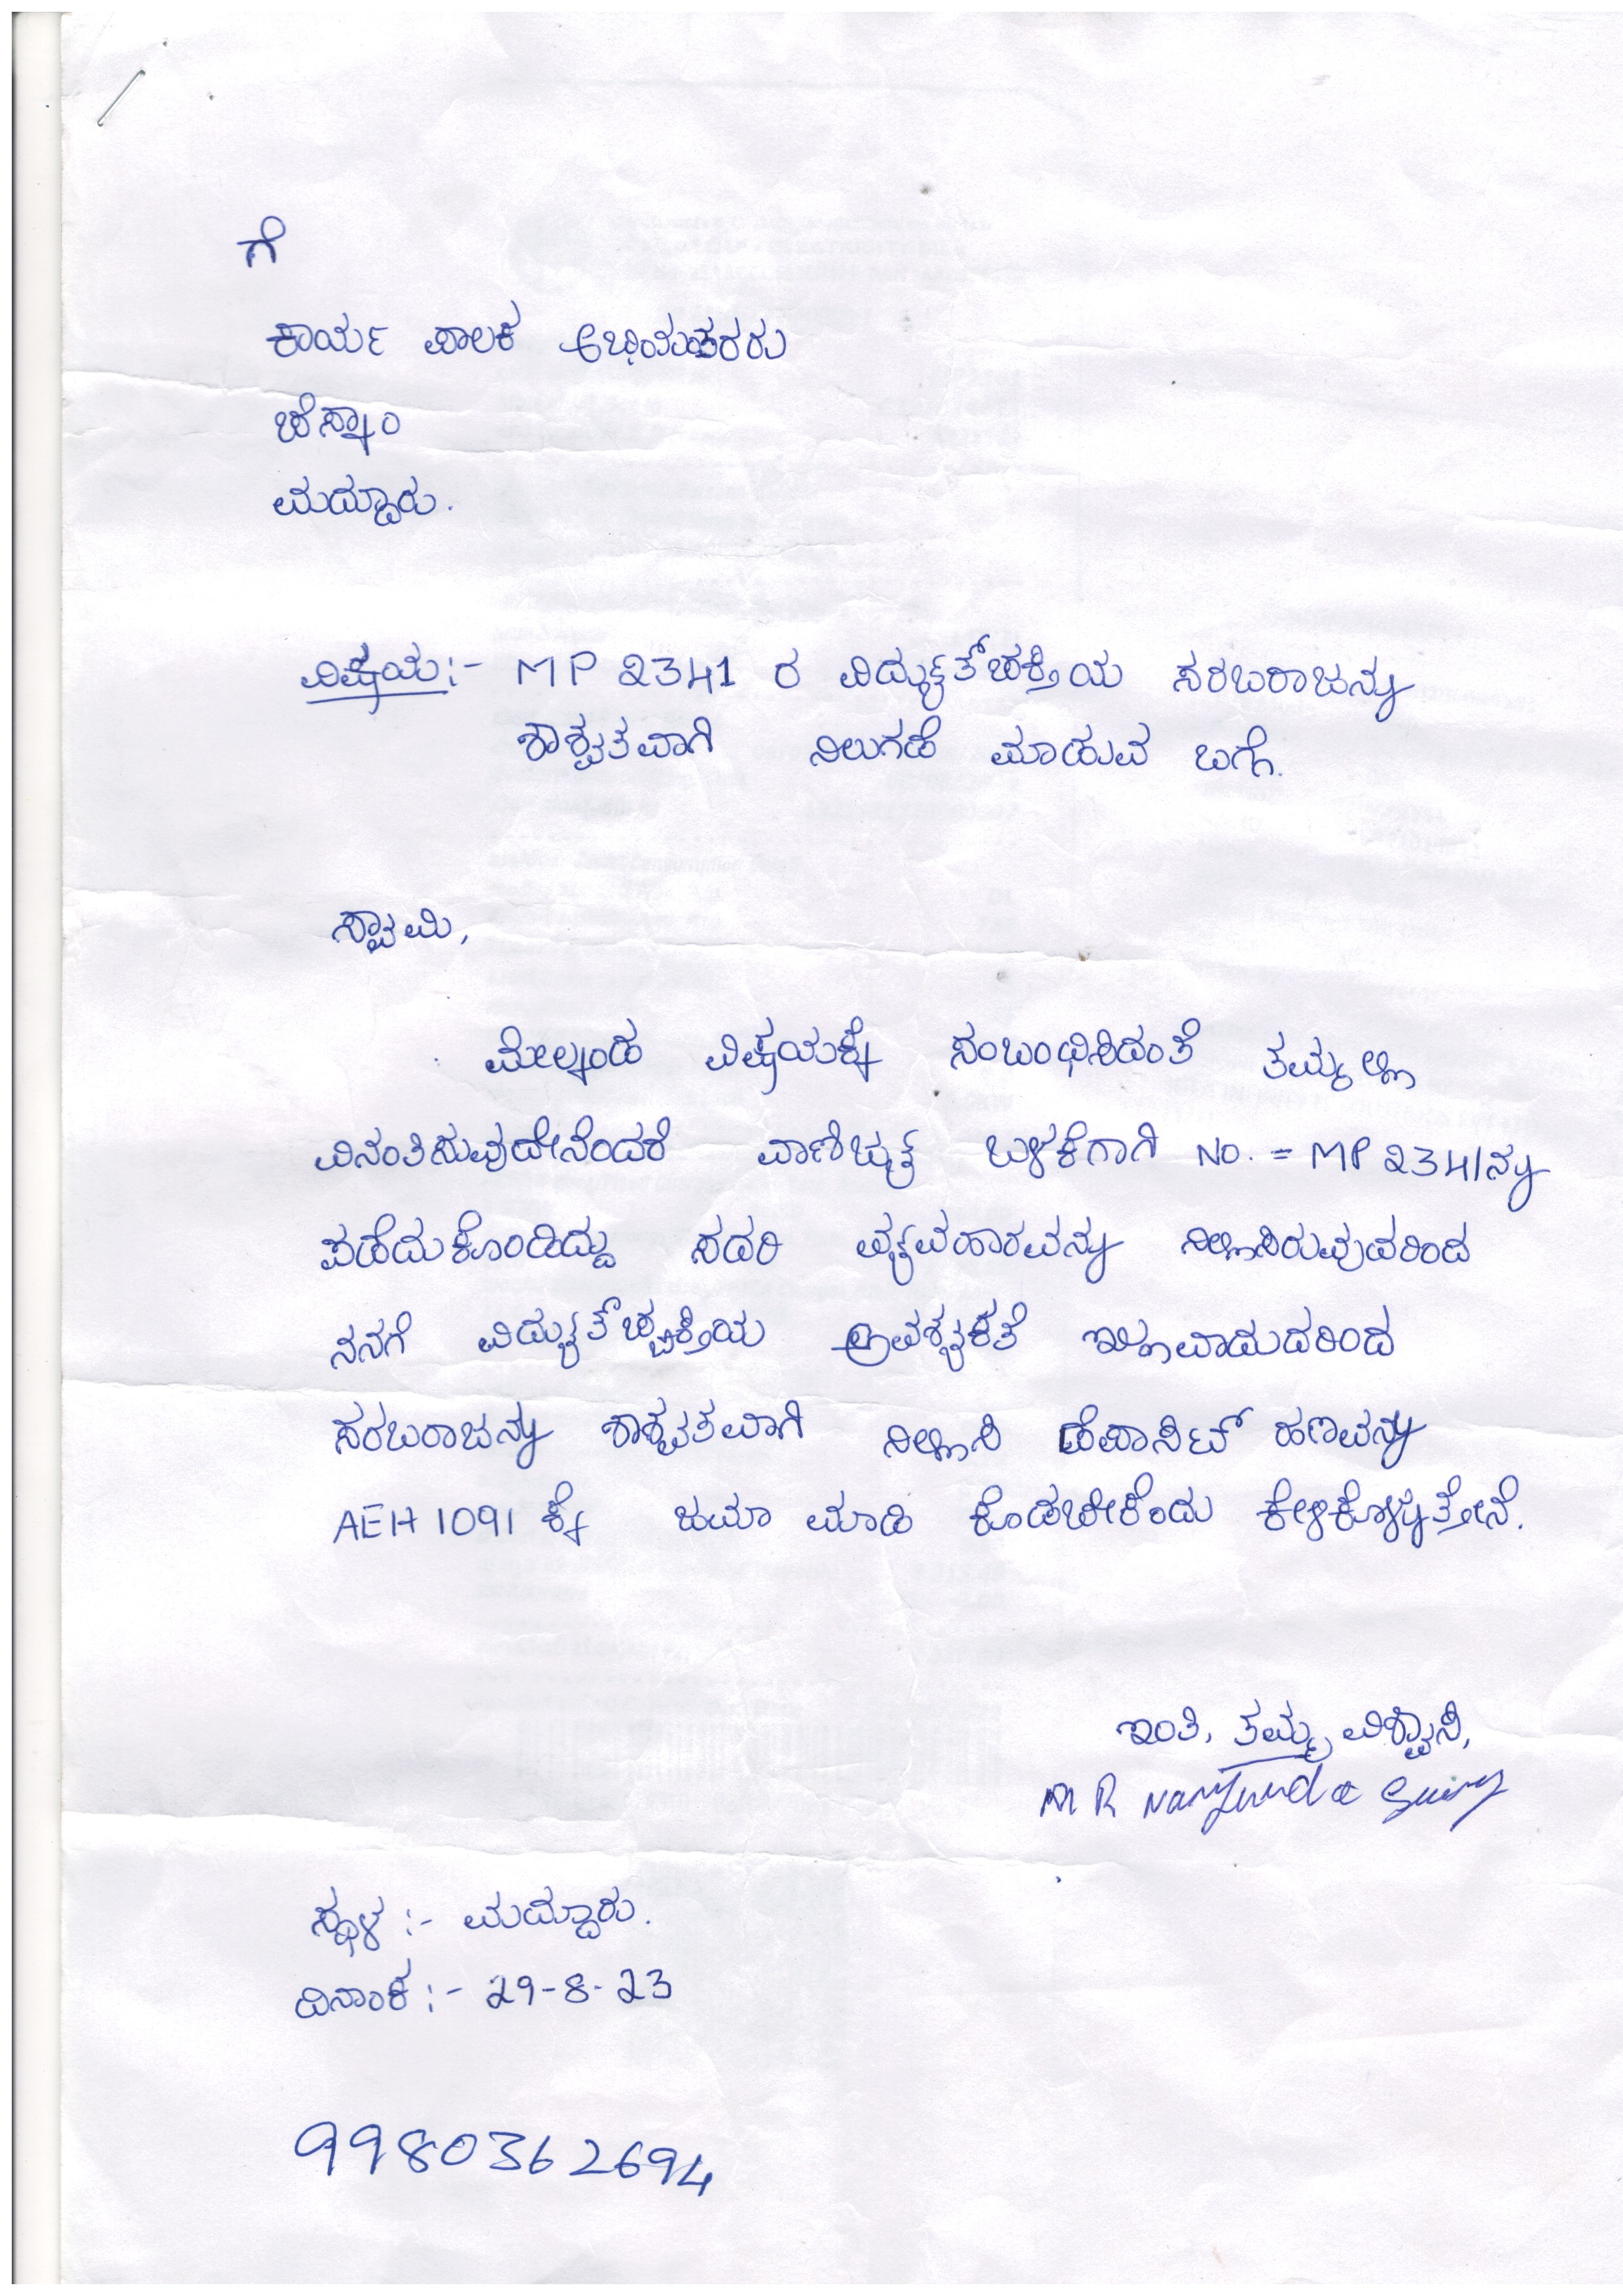 ಗೆ
ಕಾರ್ಯ ಪಾಲಕ ಅಭಿಯಂತರರು
ಚೆಸ್ಕಾಂ
ಮದ್ದೂರು.
ವಿಷಯ:- MP 2341 ರ ವಿದ್ಯುತ್‌ಚಕ್ತಿಯ ಸರಬರಾಜನ್ನು
ಶಾಶ್ವತವಾಗಿ ನಿಲುಗಡೆ ಮಾಡುವ ಬಗ್ಗೆ.
ಸ್ವಾಮಿ,
ಮೇಲ್ಕಂಡ ವಿಷಯಕ್ಕೆ ಸಂಬಂಧಿಸಿದಂತೆ ತಮ್ಮಲ್ಲಿ
ವಿನಂತಿಸುವುದೇನೆಂದರೆ ವಾಣಿಜ್ಯ ಬಳಕೆಗಾಗಿ NO. = MP 2341ನ್ನು
ಪಡೆದುಕೊಂಡಿದ್ದು ಸದರಿ ವ್ಯವಹಾರವನ್ನು ನಿಲ್ಲಿಸಿರುವುದರಿಂದ
ನನಗೆ ವಿದ್ಯುತ್‌ಚ್ಛಕ್ತಿಯ ಅವಶ್ಯಕತೆ ಇಲ್ಲವಾದುದರಿಂದ
ಸರಬರಾಜನ್ನು ಶಾಶ್ವತವಾಗಿ ನಿಲ್ಲಿಸಿ ಡೆಪಾಸಿಟ್ ಹಣವನ್ನು
AEH 1091 ಕ್ಕೆ ಜಮಾ ಮಾಡಿ ಕೊಡಬೇಕೆಂದು ಕೇಳಿಕೊಳ್ಳುತ್ತೇನೆ.
ಇಂತಿ, ತಮ್ಮ ವಿಶ್ವಾಸಿ,
M R Nanjunda Swamy
ಸ್ಥಳ :- ಮದ್ದೂರು.
ದಿನಾಂಕ :- 29-8-23
9980362694